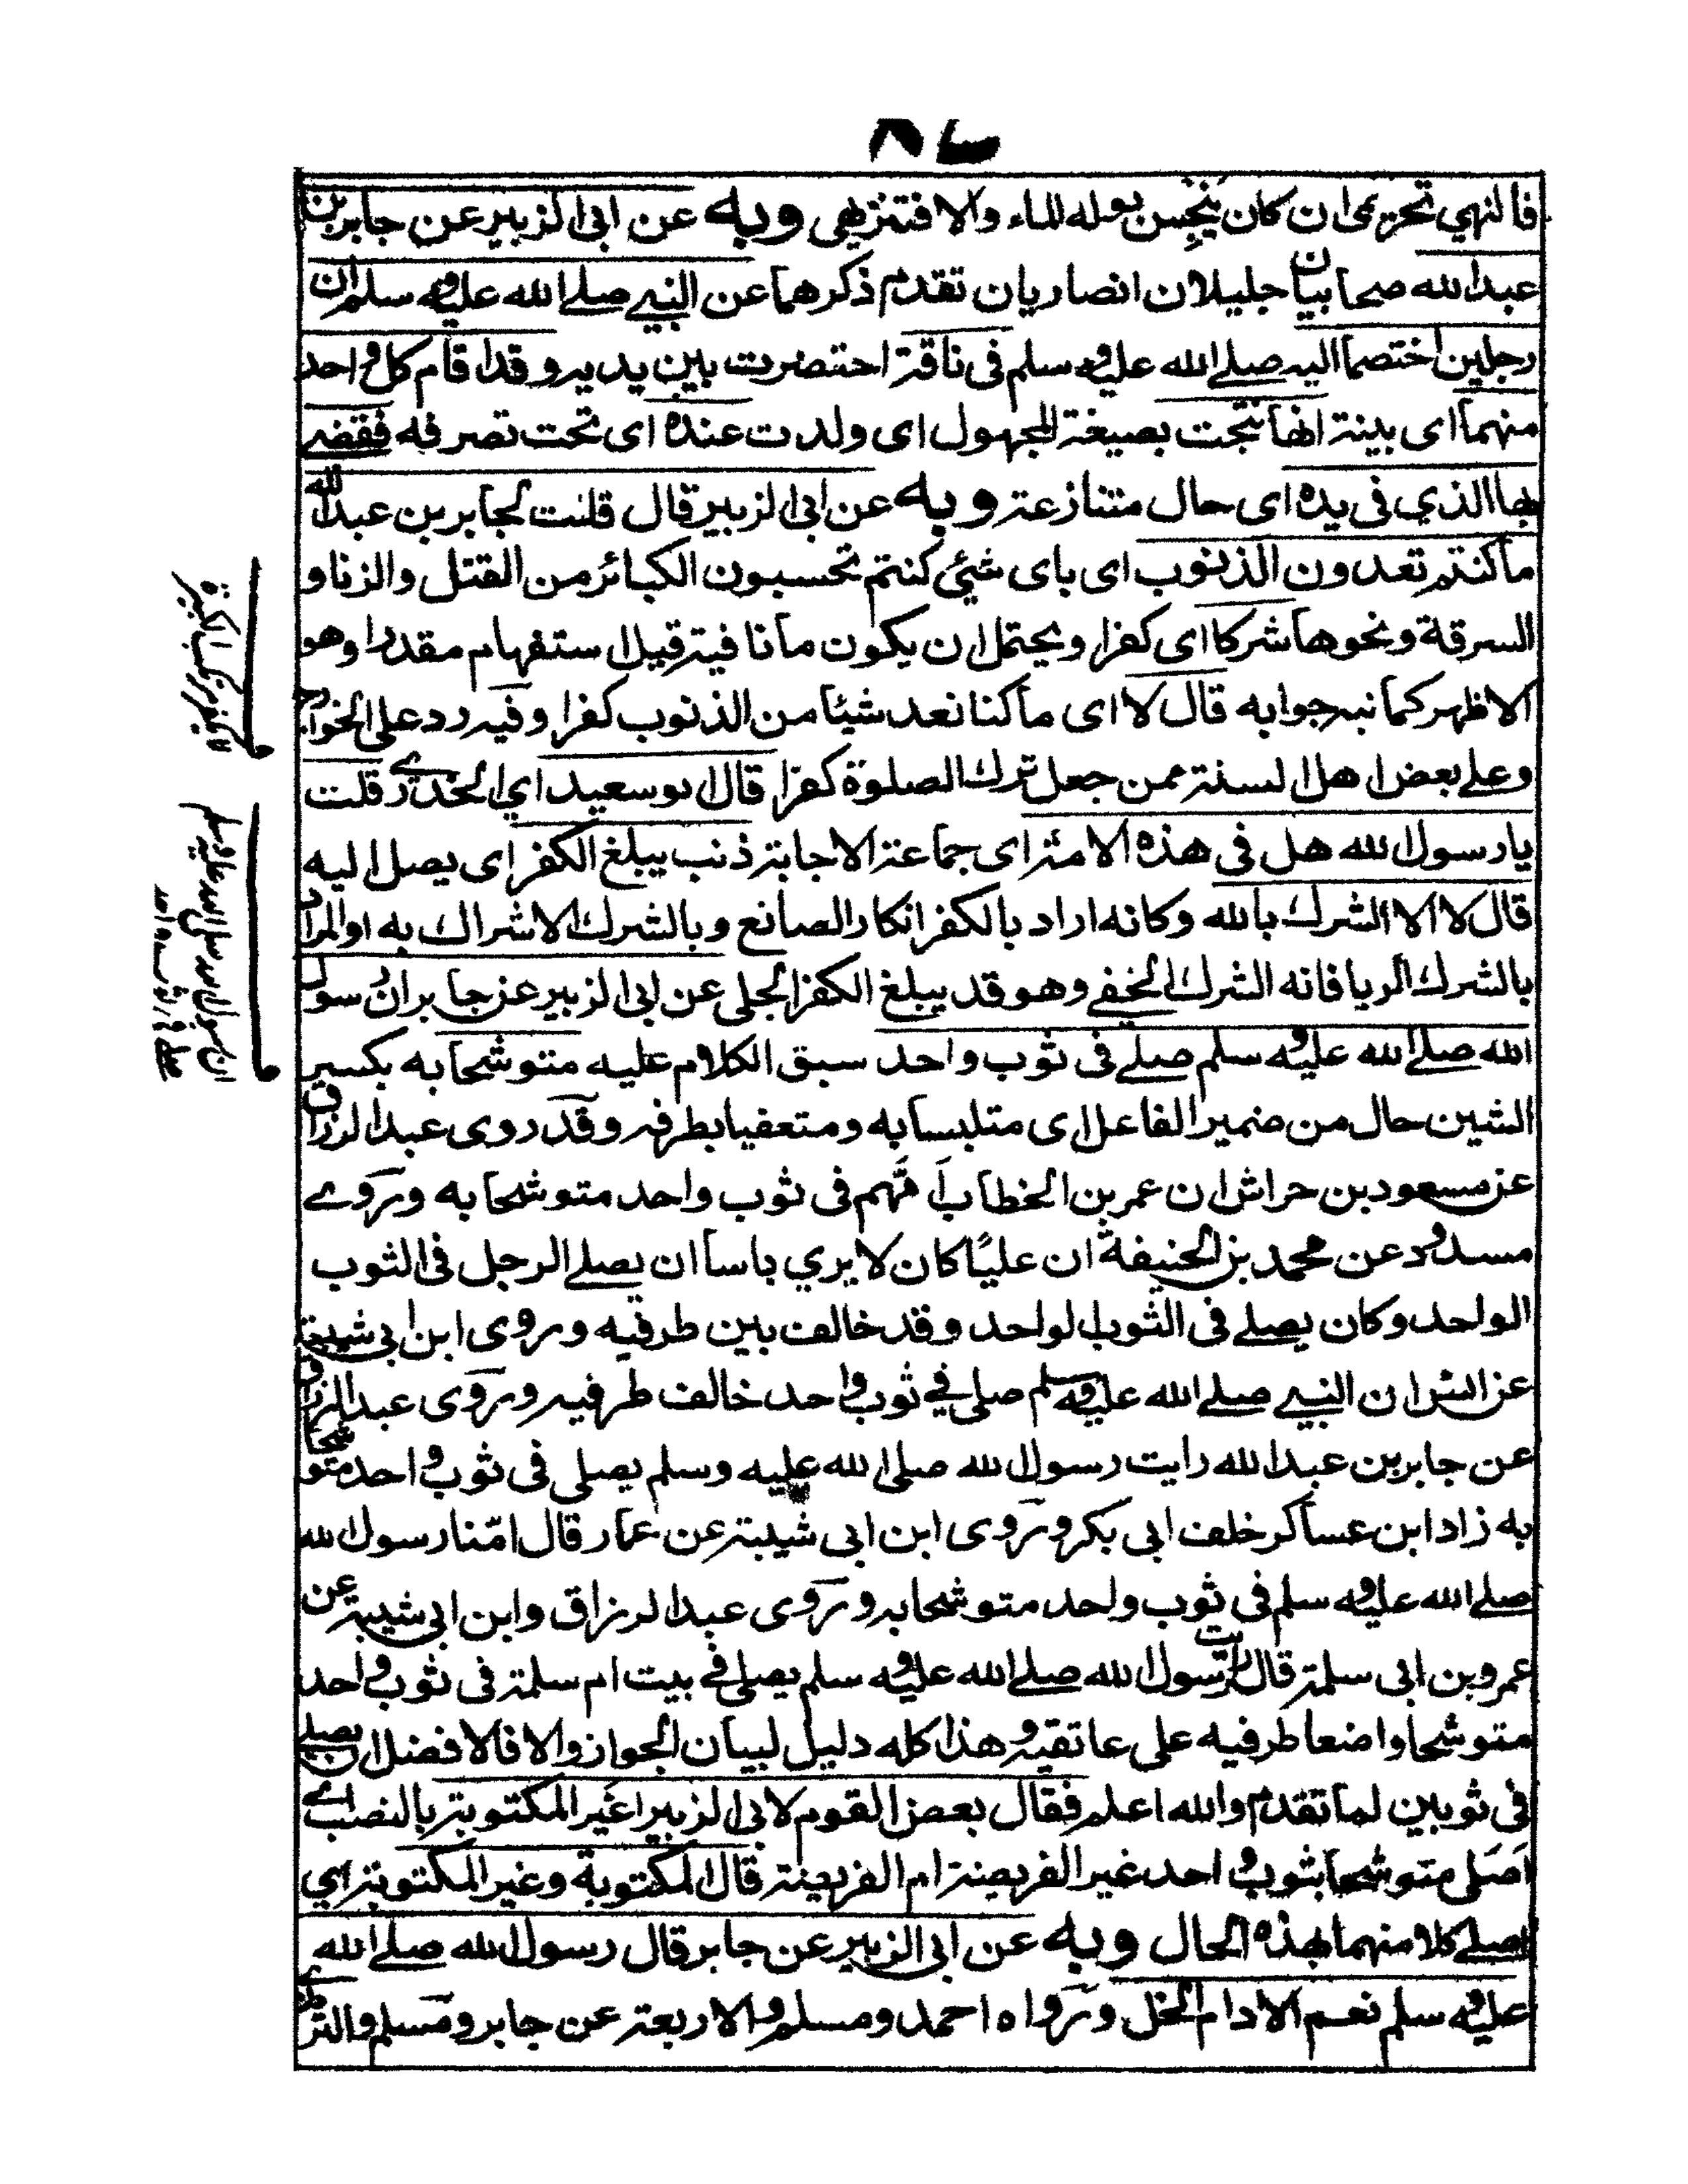 فالنهي تحريمى ان كان ينجس بوله الماء والا فتنزيهى وبه عن ابى الزبير عن جابر بن
عبد الله صحابيان جليلان انصاريان تقدم ذكرهما عن النبي صلے الله عليه وسلم ان
رجلين اختصما اليه صلے الله عليه وسلم فى ناقة احتضرت بين يديه وقد اقام كل واحد
منهما اى بينة انها نتجت بصيغة المجهول اى ولدت عنده اى تحت تصرفه فقضے
بها الذي فى يده اى حال متنازعة وبه عن ابى الزبير قال قلت لجابر بن عبد الله
ما كنتم تعدون الذنوب اى باى شئي كنتم تحسبون الكبائر من القتل والزنا و
السرقة ونحوها شركا اى كفرا ويحتمل ان يكون ما نافية قبل استفهام مقدرا وهو
الاظهر كما نبه جوابه قال لا اى ما كنا نعد شيئا من الذنوب كفرا وفيه رد على الخوارج
وعلے بعض اهل السنة ممن جعل ترك الصلوة كفرا قال ابو سعيد اي الخدرے قلت
يا رسول الله هل فى هذه الامة اى جماعة الاجابة ذنب يبلغ الكفر اى يصل اليه
قال لا الا الشرك بالله وكانه اراد بالكفر انكار الصانع وبالشرك الاشراك به او المراد
بالشرك الريا فانه الشرك الخفے وهو قد يبلغ الكفر الجلى عن ابى الزبير عن جابر ان رسول
الله صلے الله عليه وسلم صلے فى ثوب واحد سبق الكلام عليه متوشحا به بكسر
الشين حال من ضمير الفاعل اى متلبسا به ومتعفيا بطرفه وقد روى عبد الرزاق
عن مسعود بن حراش ان عمر بن الخطاب اَمَّهم فى ثوب واحد متوشحا به وروے
مسدد وعن محمد بن الحنيفة ان عليًا كان لا يري باسا ان يصلے الرجل فى الثوب
الواحد وكان يصلے فى الثوب الواحد وقد خالف بين طرفيه وروى ابن ابي شيبة
عن انس ان النبے صلے الله عليه وسلم صلى في ثوب واحد خالف طرفيه وروى عبد الرزاق
عن جابر بن عبد الله رايت رسول الله صلى الله عليه وسلم يصلى فى ثوب واحد متوشحا
به زاد ابن عساكر خلف ابى بكر وروى ابن ابى شيبة عن عمار قال امّنا رسول الله
صلے الله عليه وسلم فى ثوب واحد متوشحا به وروى عبد الرزاق وابن ابي شيبة عن
عمرو بن ابى سلمة قال رايت رسول الله صلے الله عليه وسلم يصلى فے بيت ام سلمة فى ثوب واحد
متوشحا واضعا طرفيه على عاتقيه وهذا كله دليل لبيان الجواز والا فالافضل ان يصلے
فى ثوبين لما تقدم والله اعلم فقال بعض القوم لابى الزبير اغير المكتوبة بالنصب اے
اصلى متوشحا بثوب واحد غير الفريضة ام الفريضة قال المكتوبة وغير المكتوبة اي
اصلے كلا منهما بهذه الحال وبه عن ابى الزبير عن جابر قال رسول الله صلے الله
عليه وسلم نعم الادام الخل ورواه احمد ومسلم والاربعة عن جابر ومسلم والترمذے